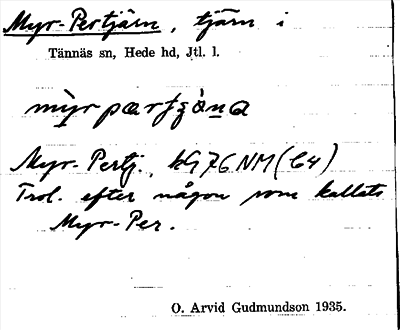 Myr-Pertjärn, tjärn i
Tännäs sn, Hede hd, Jtl. l.
Myr-Pertj., kG76NM (C4)
Trol. efter någon som kallats
Myr-Per.
O. Arvid Gudmundson 1935.